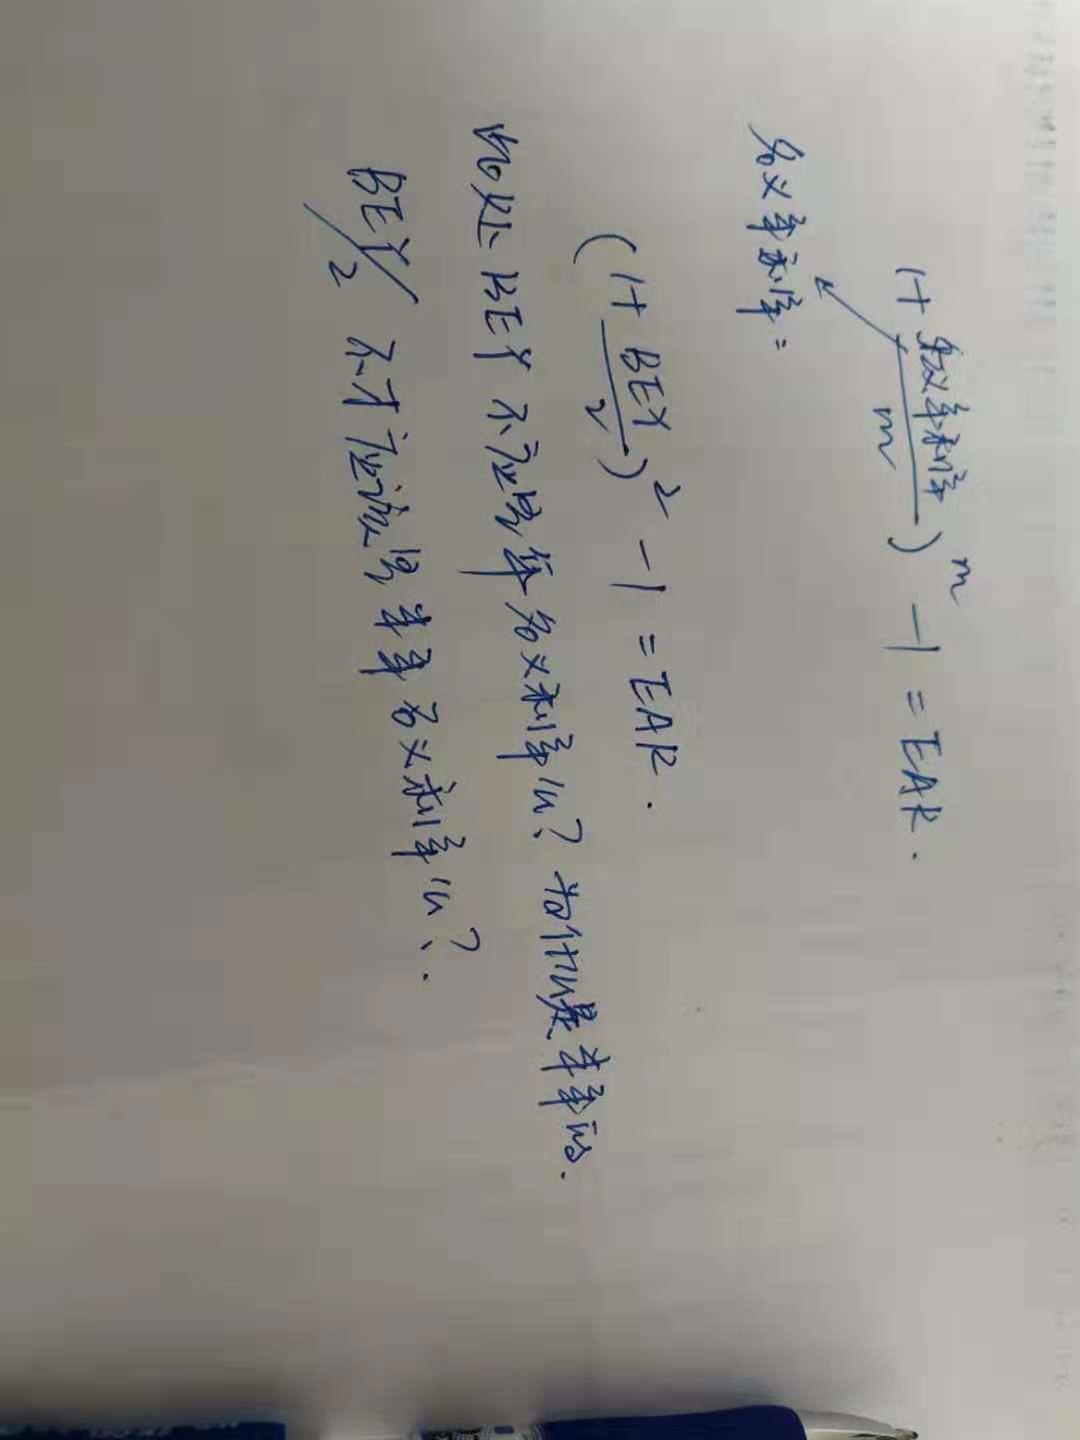 1+ 名义年利率/m )^m - 1 = EAR.
名义年利率=
(1+ BEY/2 )^2 - 1 = EAR.
此处 BEY 不应是年名义利率吗? 为什么是半年的.
BEY/2 不才应该是半年名义利率吗?.